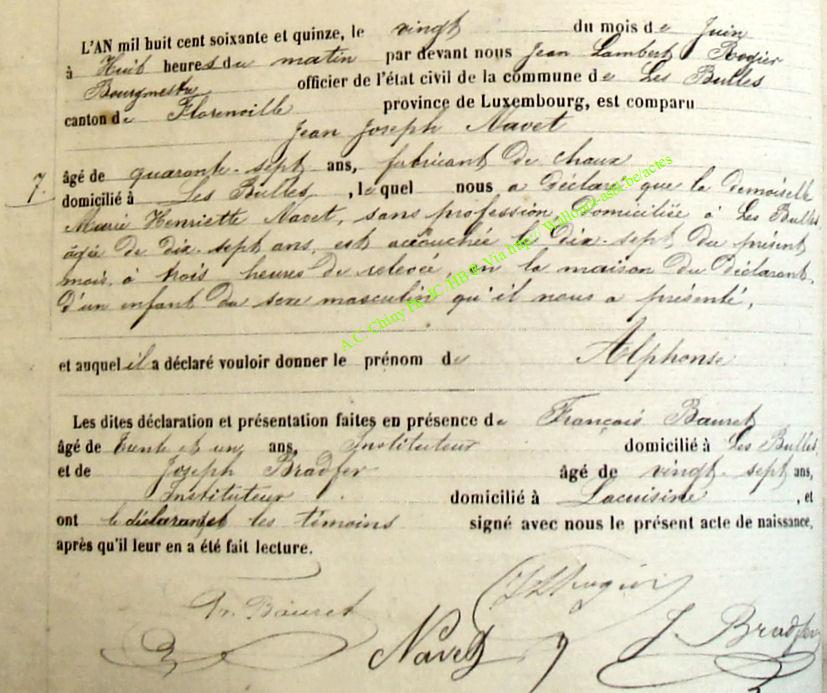 L'AN mil huit cent soixante et quinze, le vingt du mois de Juin
à Huit heures du matin par devant nous Jean Lambert Rogier
Bourgmestre officier de l'état civil de la commune de Les Bulles
canton de Florenville province de Luxembourg, est comparu
Jean Joseph Navet
7.
âgé de quarante-sept ans, fabricant de chaux
domicilié à Les Bulles, lequel nous a déclaré que la demoiselle
Marie Henriette Navet, sans profession, domiciliée à Les Bulles
âgée de dix-sept ans, est accouchée le dix-sept du présent
mois, à trois heures de relevée, en la maison du déclarant.
d'un enfant du sexe masculin qu'il nous a présenté,
et auquel il a déclaré vouloir donner le prénom de Alphonse
Les dites déclaration et présentation faites en présence de François Bauret
âgé de trente et un ans, Instituteur domicilié à Les Bulles
et de Joseph Bradfer âgé de vingt-sept ans,
Instituteur domicilié à Lacuisine, et
ont le déclarant et les témoins signé avec nous le présent acte de naissance,
après qu'il leur en a été fait lecture.
Fr. Bauret
JLRogier
Navet
J. Bradfer